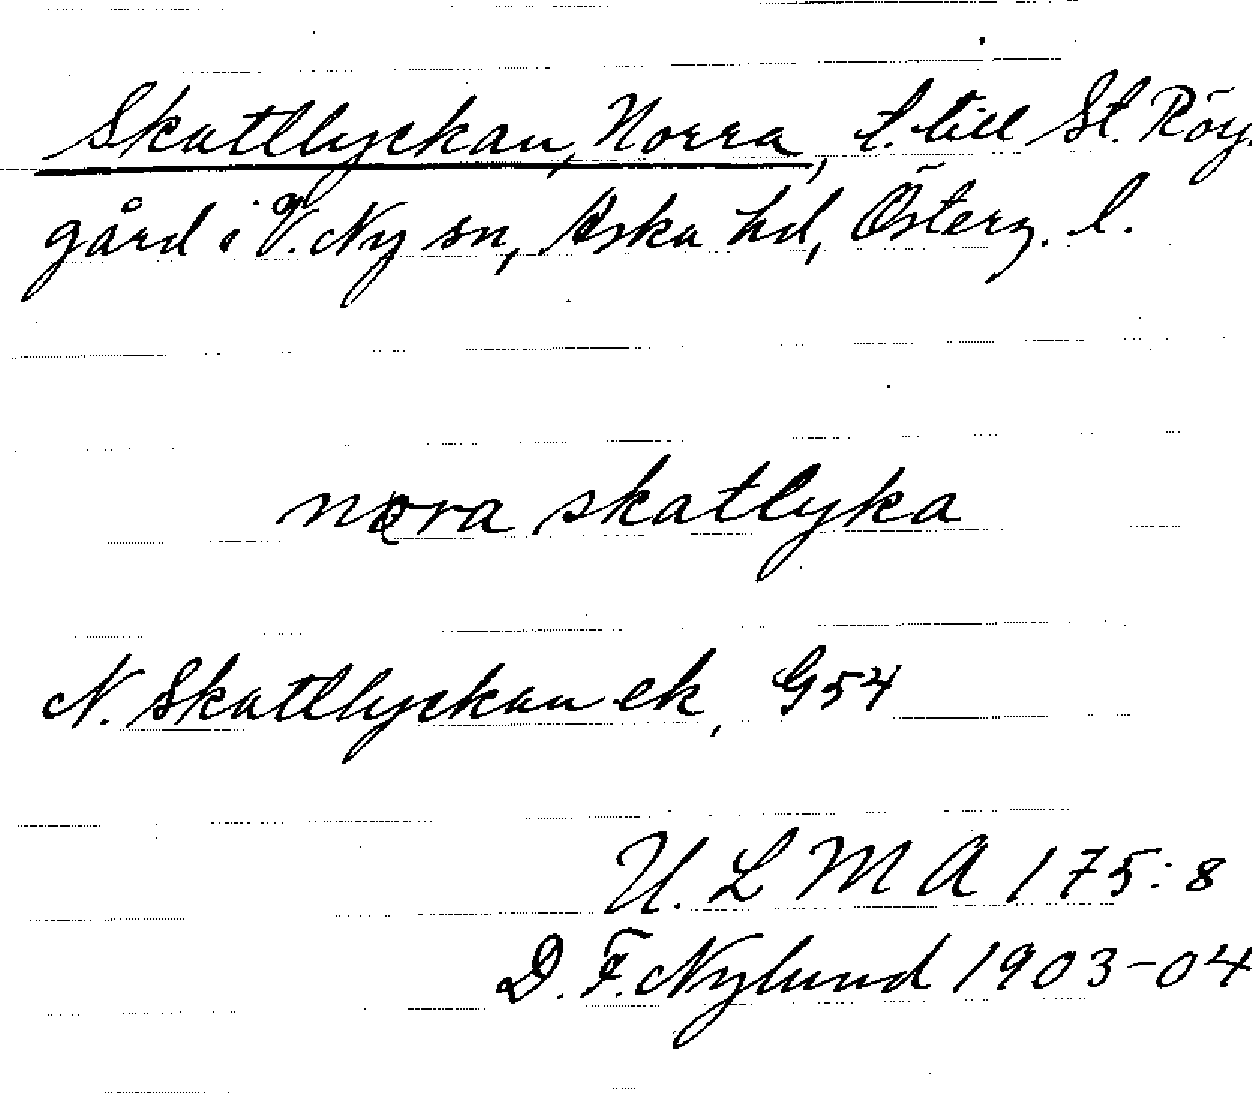 Skattlyckan, Norra, t. till St. Röj.
gård i V. Ny sn, Aska hd, Österg. l.
nora skatlyka
N. Skattlyckan ek, G54
U. L M A 175:8
D. F. Nylund 1903-04